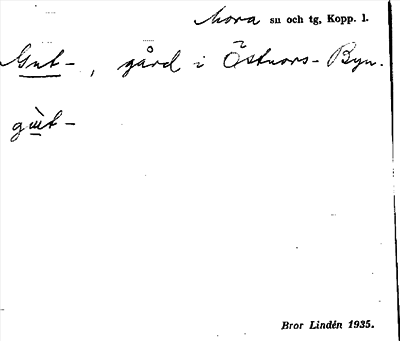 Mora sn och tg, Kopp. l.
Gut-, gård i Östnors-Byn.
gùt-
Bror Lindén 1935.